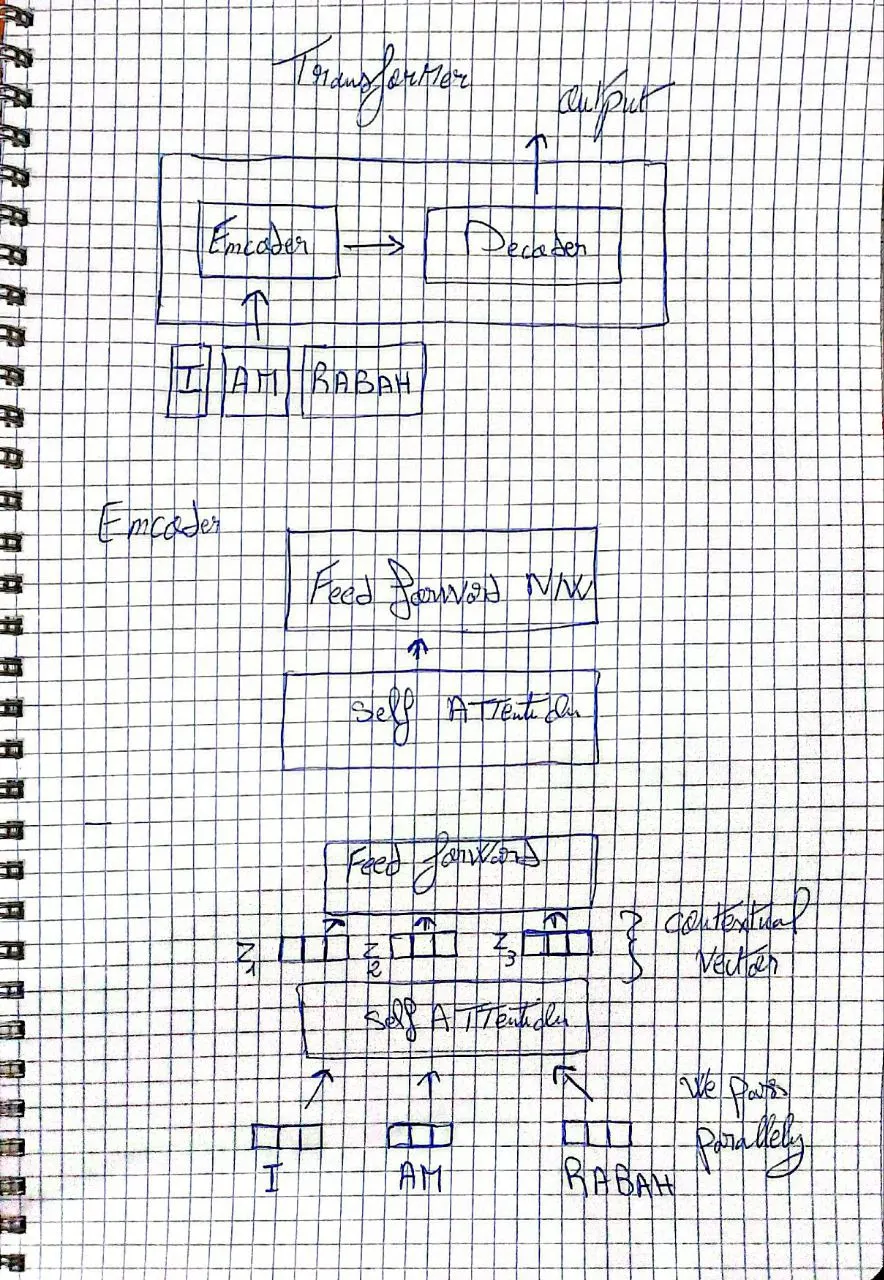 Transformer
output
Encoder
Decoder
I AM RABAH
Encoder
Feed forward N/W
Self ATTention
Feed forward
Z1 Z2 Z3
contextual
Vector
Self ATTention
We pass
parallely
I AM RABAH